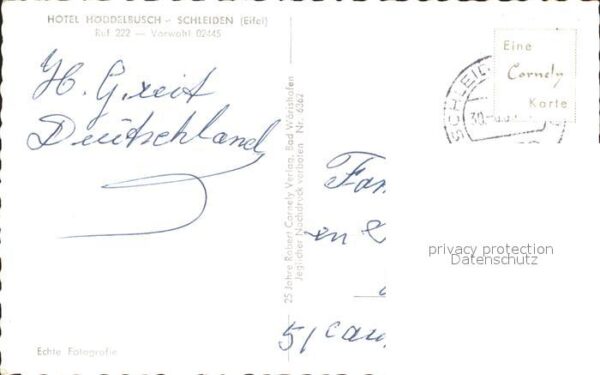 HOTEL HÖDDELBUSCH – SCHLEIDEN (Eifel)
Ruf 222 — Vorwahl 02445
Deutschland
25 Jahre Robert Cornely Verlag, Bad Wörishofen
Jeglicher Nachdruck verboten Nr. 6362
Echte Fotografie
Eine
Cornely
Karte
SCHLEID
30.
Fam
en
privacy protection
Datenschutz